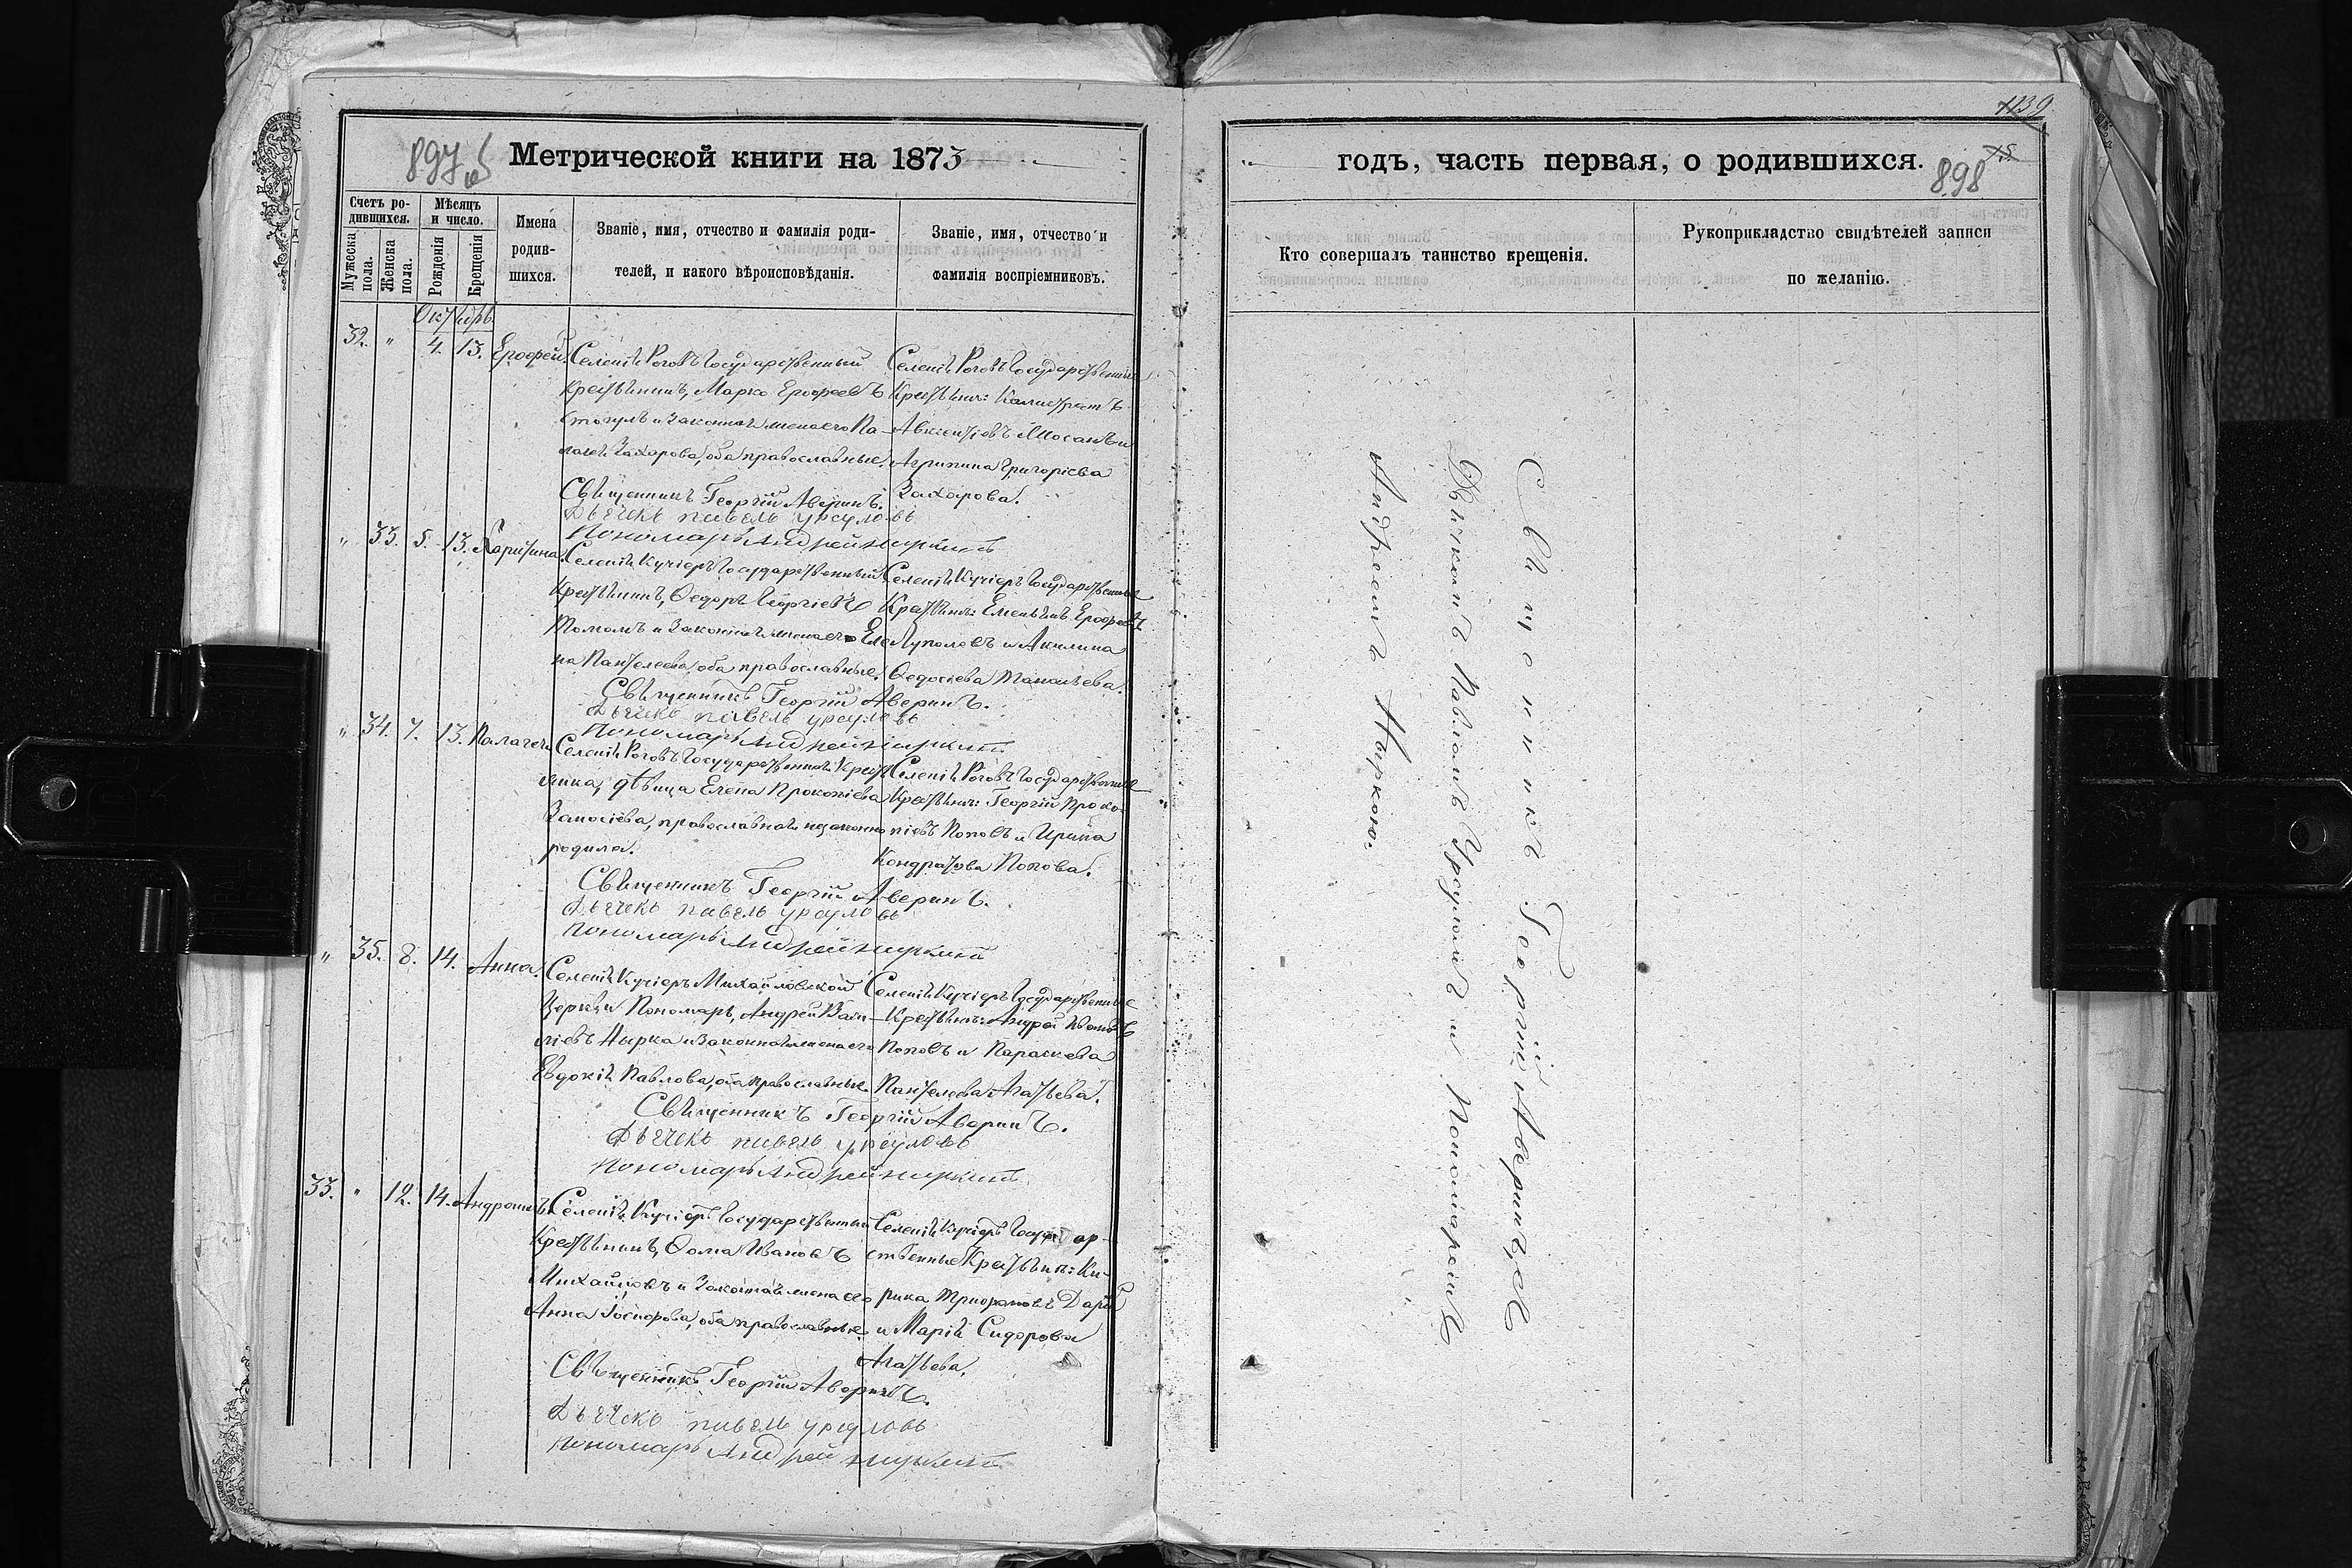 1139
897 об
Метрической книги на 1873
годъ, часть первая, о родившихся.
15
898
Счетъ родившихся.
Мужеска пола.
Женска пола.
Мѣсяцъ и число.
Рожденія
Крещенія
Имена родившихся.
Званіе, имя, отчество и фамилія родителей, и какого вѣроисповѣданія.
Званіе, имя, отчество и фамилія воспріемниковъ.
Кто совершалъ таинство крещенія.
Рукоприкладство свидѣтелей записи по желанію.
Октябрь.
32. " 4. 13. Ерофей.
Селенія Роговъ Государственный
Крестьянинъ, Марко Ерофеевъ
и законная жена его Па-
Захарова, оба православные.
Селенія Роговъ Государственные
Крестьяне: Калистратъ
Авксентіевъ и
Агрипина Григоріева
Захарова.
Священникъ Георгій Аверинъ.
Дьячекъ Павелъ Урсуловъ
Пономарь Андрей
" 33. 5. 13. Харитина.
Селенія Кучіеръ Государственный
Крестьянинъ, Ѳедоръ Георгіевъ
и законная жена его Еле-
на Пантелеева, оба православные.
Селенія Кучіеръ Государственные
Крестьяне: Емельянъ Ерофеевъ
Луполовъ и Акилина
Ѳедосѣева
Священникъ Георгій Аверинъ.
Дьячекъ Павелъ Урсуловъ
Пономарь Андрей
" 34. 7. 13. Палагея
Селенія Роговъ Государственная Кресть
янка, дѣвица Елена Прокопіева
православная незаконно
родила.
Селенія Роговъ Государственные
Крестьяне: Георгій Проко-
піевъ Поповъ и Ирина
Кондратова Попова.
Священникъ Георгій Аверинъ.
Дьячекъ Павелъ Урсуловъ
Пономарь Андрей
" 35. 8. 14. Анна.
Селенія Кучіеръ Михайловской
Церкви Пономарь, Андрей Васи-
ліевъ Нырка и законная жена его
Евдокія Павлова, оба православные.
Селенія Кучіеръ Государственные
Крестьяне: Андрей Ивановъ
Поповъ и Параскева
Пантелеева Агатьева.
Священникъ Георгій Аверинъ.
Дьячекъ Павелъ Урсуловъ
Пономарь Андрей
33. " 12. 14. Андроникъ.
Селенія Кучіеръ Государственный
Крестьянинъ, Ѳома Ивановъ
и законная жена его
Анна оба православные.
Селенія Кучіеръ Государ-
ственные Крестьяне: Ки-
рика Трифоновъ
и Марія Сидорова
Агатьева.
Священникъ Георгій Аверинъ.
Дьячекъ Павелъ Урсуловъ
Пономарь Андрей
Священникъ Георгій Аверинъ, съ
Дьячкомъ Павломъ Урсуломъ и Пономаремъ
Андреемъ Ныркою.